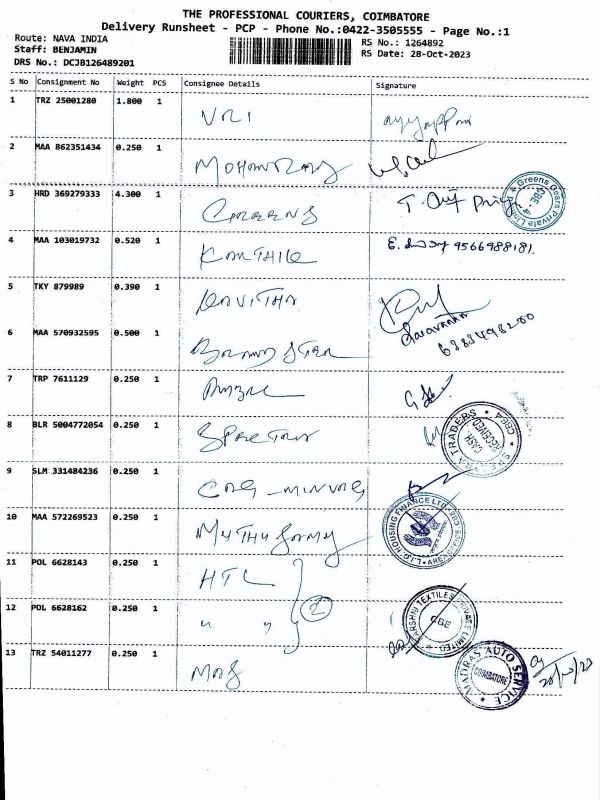 THE PROFESSIONAL COURIERS, COIMBATORE
Delivery Runsheet - PCP - Phone No.:0422-3505555 - Page No.:1
Route: NAVA INDIA RS No.: 1264892
Staff: BENJAMIN RS Date: 28-Oct-2023
DRS No.: DCJB126489201
S No Consignment No Weight PCS Consignee Details Signature
1 TRZ 25001280 1.800 1 VRI
2 MAA 862351434 0.250 1 MOHANRAJ
3 HRD 369279333 4.300 1 GREENS
Greens Gears Private Limited
4 MAA 103019732 0.520 1 KARTHIK E. 9566988181.
5 TKY 879989 0.390 1 KAVITHA
Saravanan
6383498200
6 MAA 570932595 0.500 1
7 TRP 7611129 0.250 1
8 BLR 5004772054 0.250 1 SPECTRA
SPECTRA TRADERS CBE4
CASH RECEIVED
9 SLM 331484236 0.250 1
10 MAA 572269523 0.250 1 MUTHUSAMY
L.I.C HOUSING FINANCE LTD
11 POL 6628143 0.250 1 HTL
12 POL 6628162 0.250 1 " " 2
TEXTILES PRIVATE LIMITED
CBE
13 TRZ 54011277 0.250 1 MAS
MADRAS AUTO SERVICE
COIMBATORE